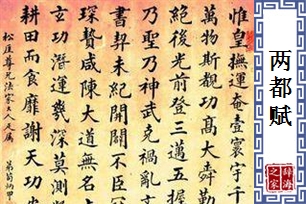 惟皇撫運奄壹寰宇千
萬物斯覩功高大舜勤
絕後光前登三邁五握
乃聖乃神武克禍亂
書契未紀開闢不臣
琛贄咸陳大道無名上
玄功潛運幾深莫測
耕田而食靡謝天功
尊兄法家大人
两都赋
辞海
之家